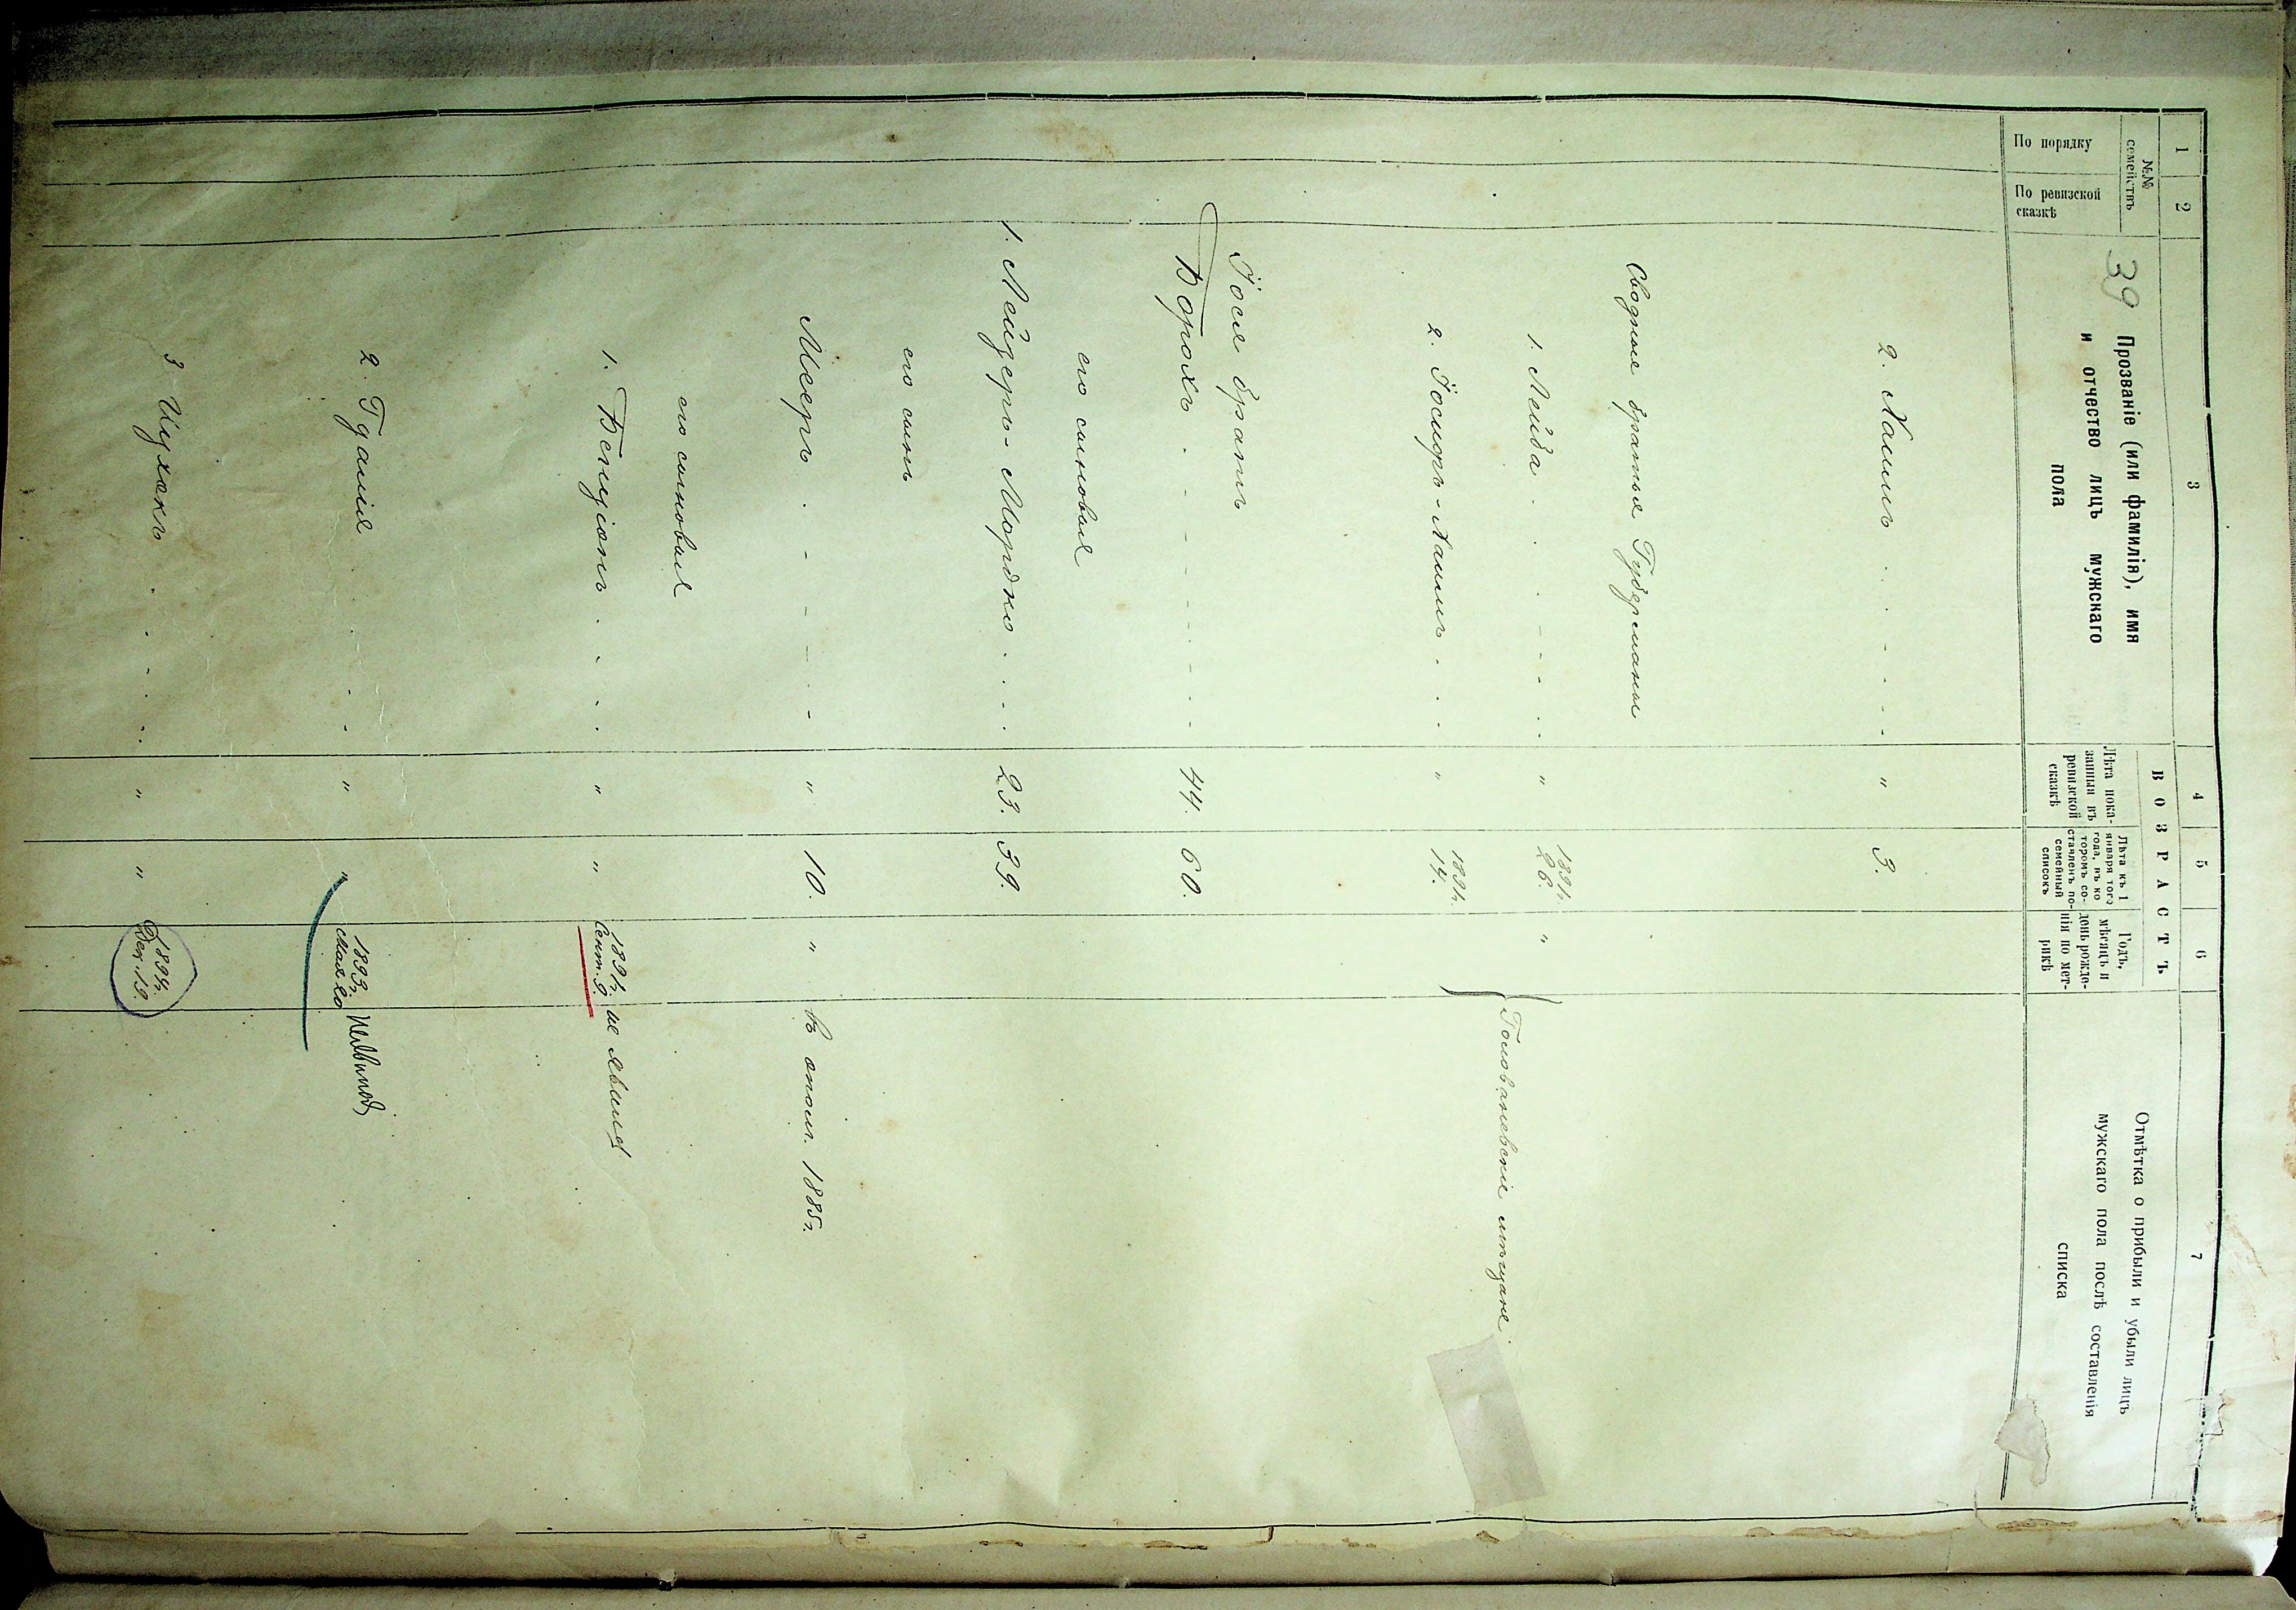 1 2 3 4 5 6 7
№№ семействъ
По порядку
По ревизской сказкѣ
39
Прозваніе (или фамилія), имя
и отчество лицъ мужскаго
пола
ВОЗРАСТЪ
Лѣта пока-
занныя въ
ревизской
сказкѣ
Лѣта къ 1
января того
года, въ ко-
торомъ со-
ставленъ по-
семейный
списокъ
Годъ,
мѣсяцъ и
день рожде-
нія по мет-
рикѣ
Отмѣтка о прибыли и убыли лицъ
мужскаго пола послѣ составленія
списка
2. Хаимъ . . - - - - " 3.
Сводные братья Губерманы
1. Лейба . . . - - - . . " 1891г. 26. "
Голованевскіе мѣщане
2. Іосифъ-Хаимъ . . - - " 1891г. 14.
Іося братъ
Борохъ . - - - - - - 44. 60.
его сыновья
1. Лейзеръ-Мордко . . . - 23. 39.
его сынъ
Мееръ . - - - - - " 10. " Въ опол. 1885г.
его сыновья
1. Бенціонъ . . - - " " 1891г. Сент. 9. не явился
2. Гдалія . . . - - " " 1893г. Мая 20
3 Ицхокъ . . . . . " " 1894г. Дек. 19.